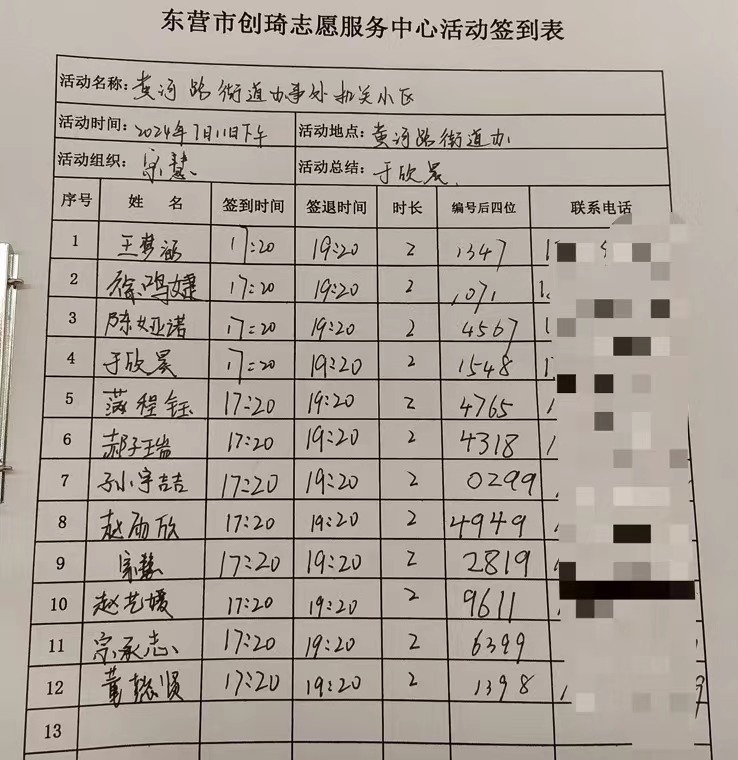 东营市创琦志愿服务中心活动签到表
活动名称：黄河路街道办事处机关小区
活动时间：2024年7月11日下午 活动地点：黄河路街道办
活动组织：宗慧 活动总结：于欣晨
序号 姓名 签到时间 签退时间 时长 编号后四位 联系电话
1 王梦涵 17:20 19:20 2 1347 1
2 徐鸣婕 17:20 19:20 2 1071 1
3 陈亚诺 17:20 19:20 2 4567 1
4 于欣晨 17:20 19:20 2 1548 1
5 程钰 17:20 19:20 2 4765 1
6 郝子瑞 17:20 19:20 2 4318 1
7 孙宇吉 17:20 19:20 2 0299
8 赵雨欣 17:20 19:20 2 4949
9 宗慧 17:20 19:20 2 2819
10 赵艺媛 17:20 19:20 2 9611
11 宗承志 17:20 19:20 2 6399
12 董懿贤 17:20 19:20 2 1398
13